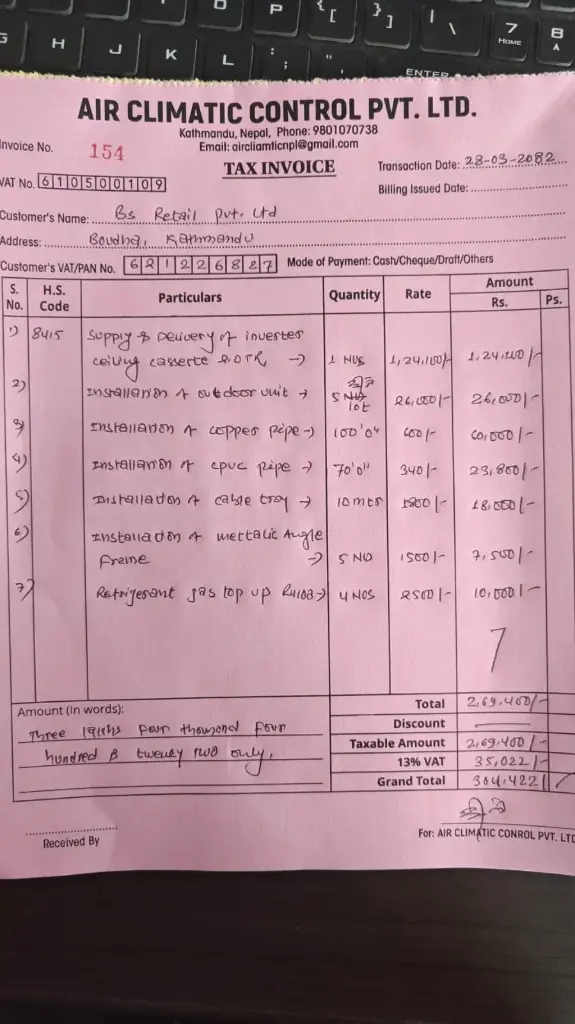 AIR CLIMATIC CONTROL PVT. LTD.
Kathmandu, Nepal, Phone: 9801070738
Email: aircliamticnpl@gmail.com
Invoice No. 154
TAX INVOICE
Transaction Date: 28-03-2082
VAT No. 610500109
Billing Issued Date:
Customer's Name: Bs Retail Pvt. Ltd
Address: Boudha, Kathmandu
Customer's VAT/PAN No. 621226827
Mode of Payment: Cash/Cheque/Draft/Others
S. No. H.S. Code Particulars Quantity Rate Amount Rs. Ps.
1) 8415 Supply & Delivery of inverter
ceiling cassette 2.0TR → 1 NOS 1,24,100/- 1,24,100/-
2) Installation of outdoor unit → lot 26,000/- 26,000/-
3) Installation of copper pipe → 100'0" 600/- 60,000/-
4) Installation of cpvc pipe → 70'0" 340/- 23,800/-
5) Installation of cable tray → 10 mtr 1800/- 18,000/-
6) Installation of mettalic Angle
Frame → 5 NO 1500/- 7,500/-
7) Refrigerant gas top up R410B → 4 NOS 2500/- 10,000/-
Total 2,69,400/-
Amount (In words):
Discount
Three lakhs four thousand four
Taxable Amount 2,69,400/-
hundred & twenty two only,
13% VAT 35,022/-
Grand Total 304,422/-
Received By
For: AIR CLIMATIC CONROL PVT. LTD